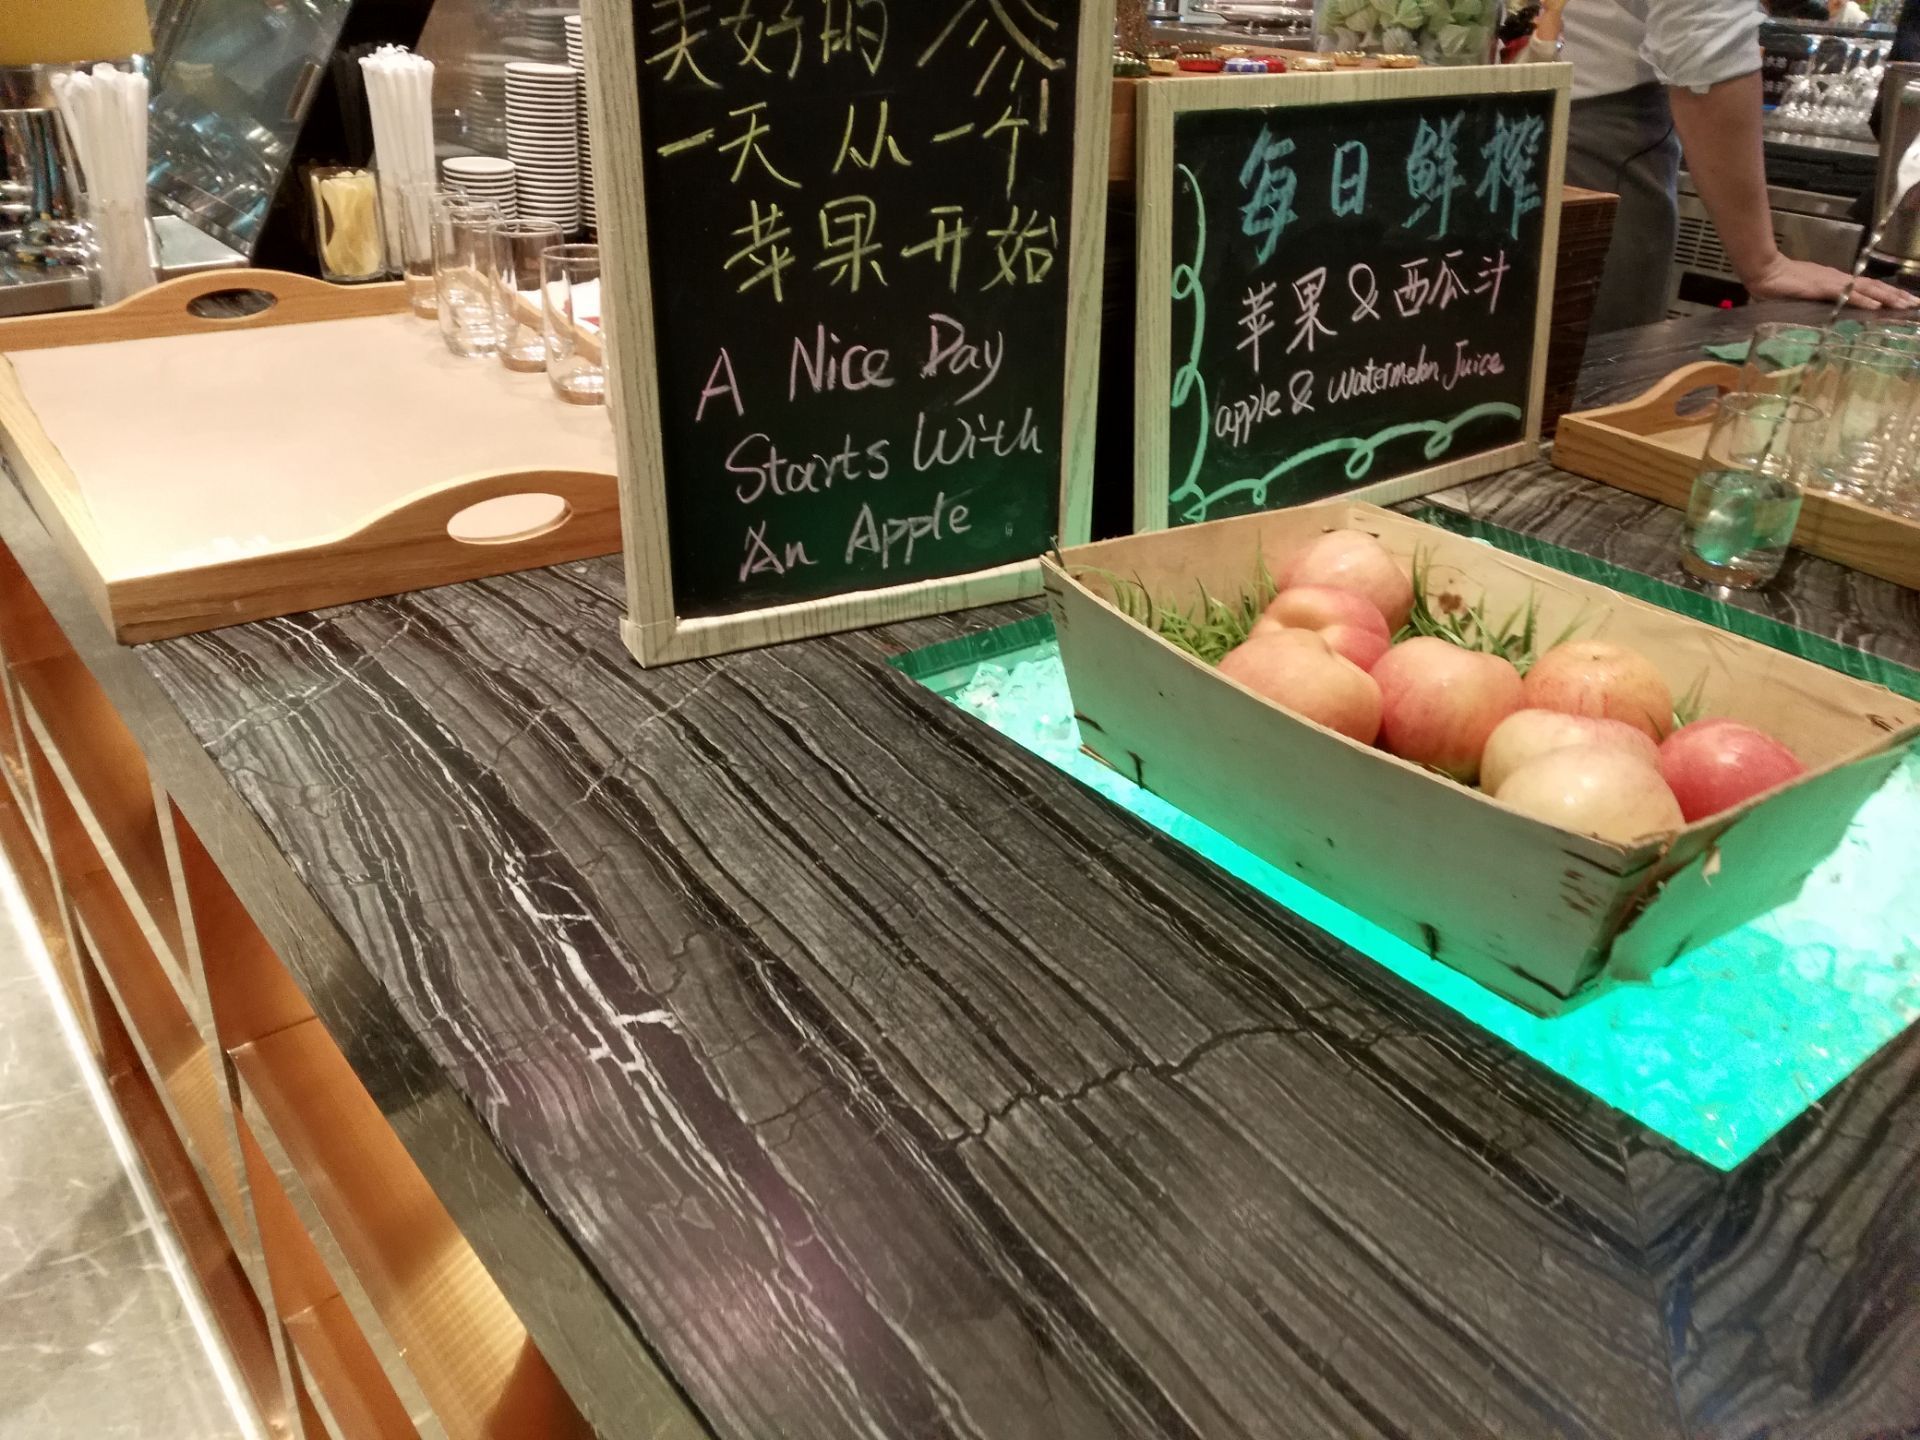 美好的
一天从一个
苹果开始
A Nice Day
Starts With
An Apple
每日鲜榨
苹果&西瓜汁
apple & watermelon Juice